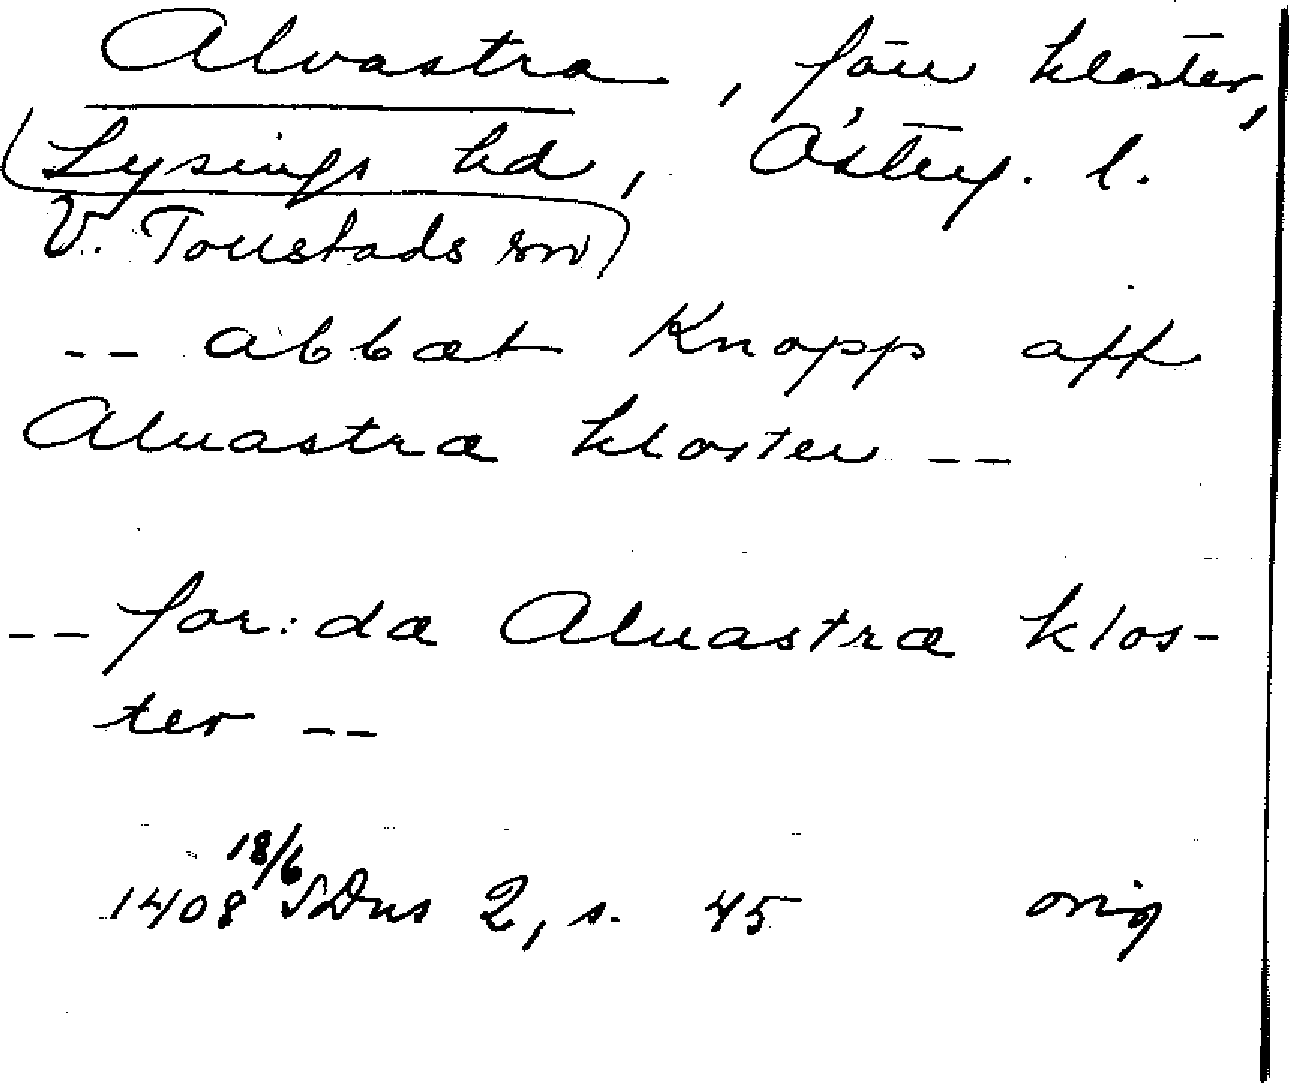 Alvastra, förr kloster,
Lysings hd, Österg. l.
V. Tollstads sn)
-- abbæt Knopp aff
Aluastra kloster --
-- for:da Aluastræ klos-
ter --
1408 18/6 SDns 2, s. 45 orig